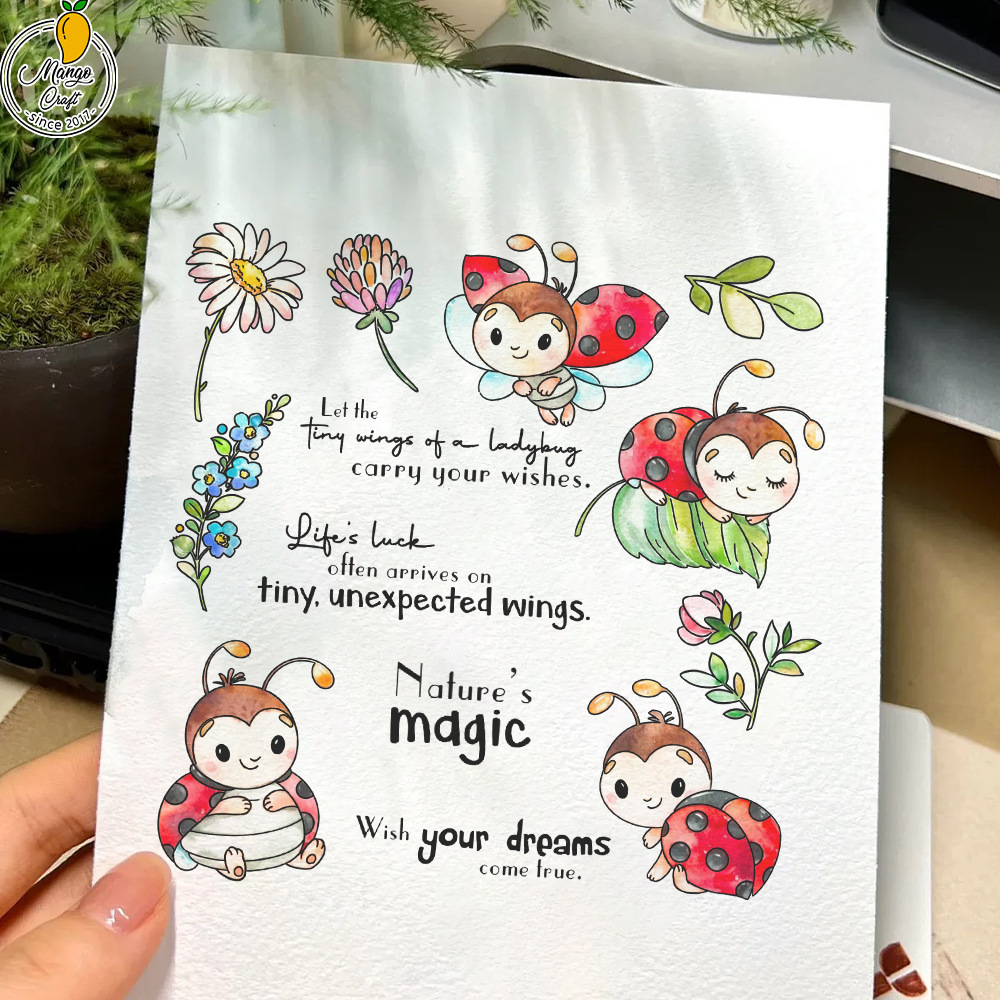 Mango
Craft
-since 2017-
Let the
tiny wings of a ladybug
carry your wishes.
Life's luck
often arrives on
tiny, unexpected wings.
Nature's
magic
Wish your dreams
come true.